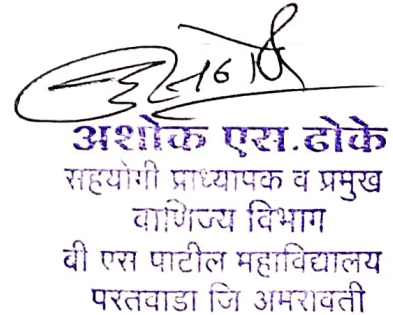 अशोक एस.ढोके
सहयोगी प्राध्यापक व प्रमुख
वाणिज्य विभाग
वी एस पाटील महाविद्यालय
परतवाडा जि अमरावती